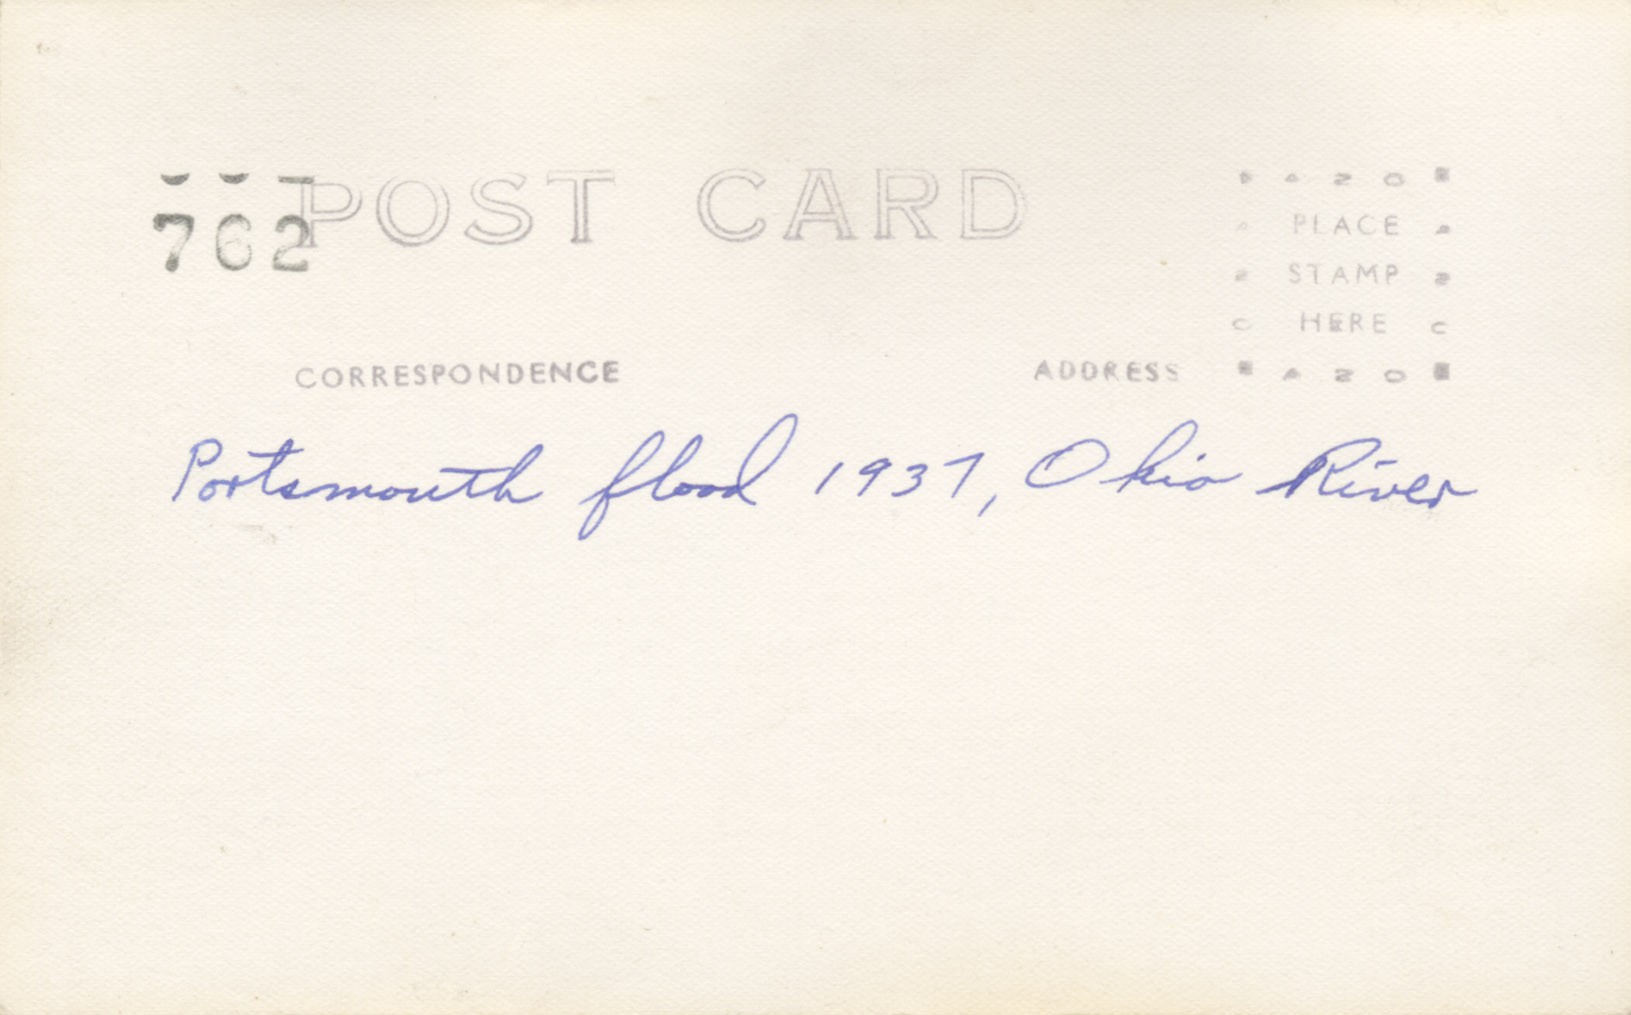 762
POST CARD
AZO
PLACE
STAMP
HERE
CORRESPONDENCE
ADDRESS
AZO
Portsmouth flood 1937, Ohio River